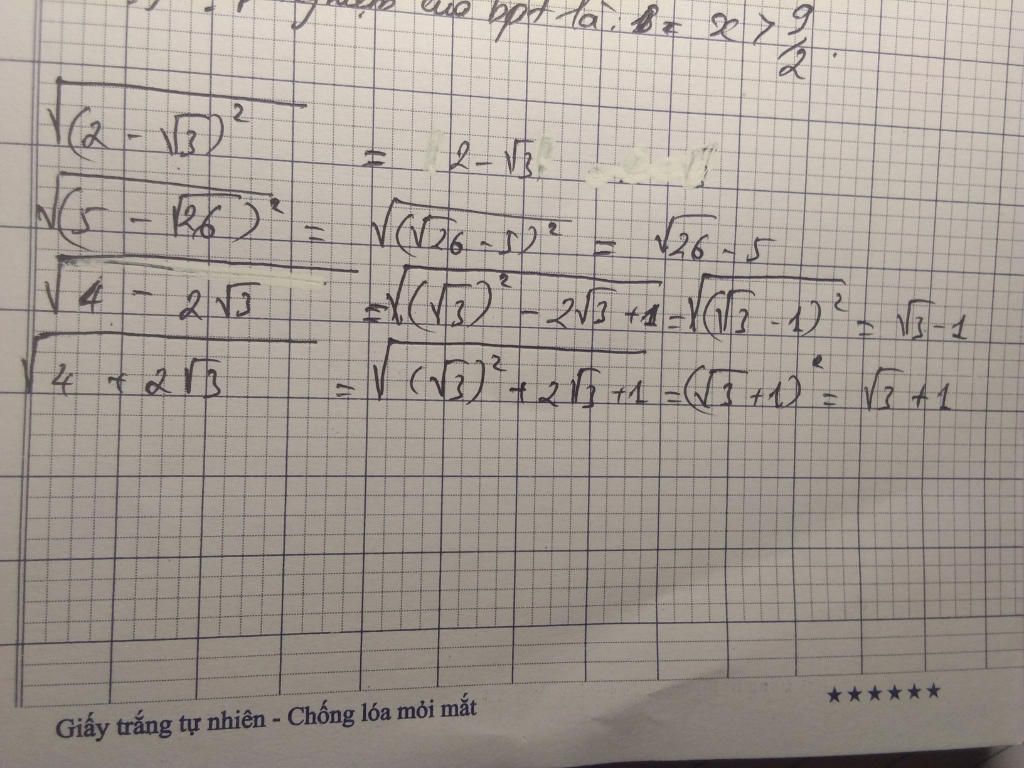 nghiệm của bpt là: S = x > 9/2.
√(2 - √3)² = 2 - √3
√(5 - √26)² = √(√26 - 5)² = √26 - 5
√4 - 2√3 = √(√3)² - 2√3 + 1 = √(√3 - 1)² = √3 - 1
√4 + 2√3 = √(√3)² + 2√3 + 1 = (√3 + 1)² = √3 + 1
★★★★★★
Giấy trắng tự nhiên - Chống lóa mỏi mắt